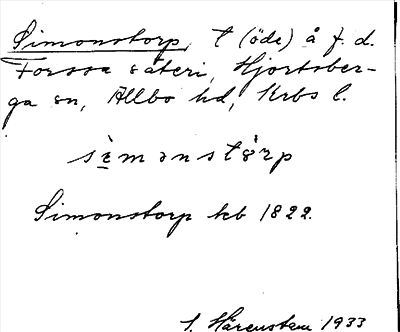 Simonstorp, t (öde) å f. d.
Forssa säteri, Hjortsber-
ga sn, Allbo hd, Krbs l.
sìmonstòrp
Simonstorp kb 1822.
Hårenstam 1933